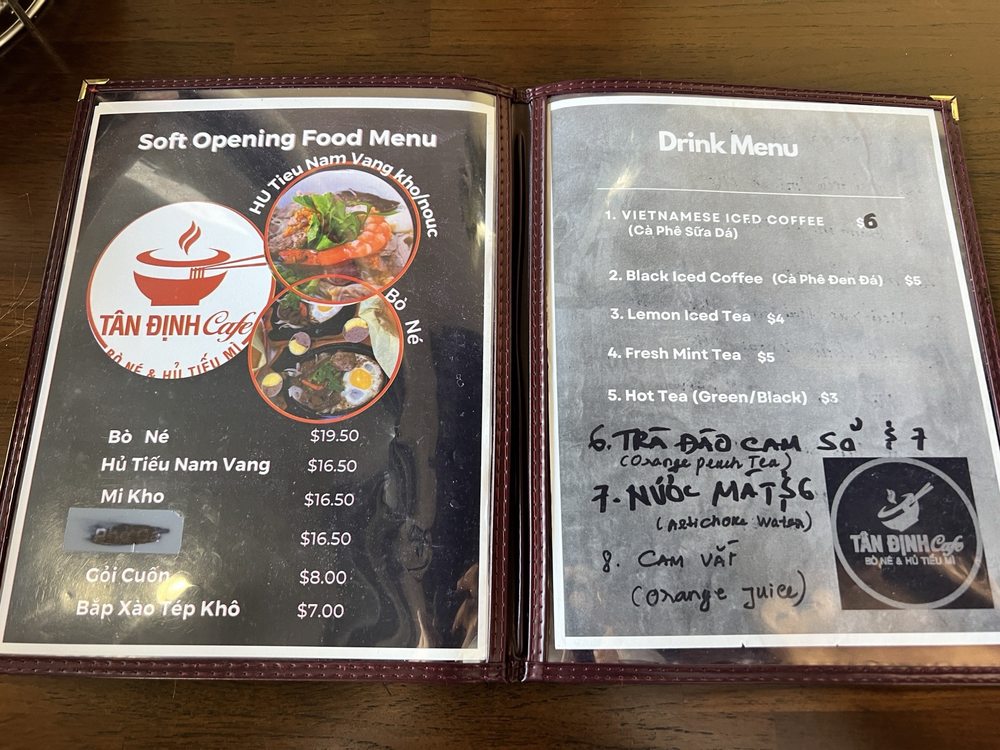 Soft Opening Food Menu
HU Tieu Nam Vang kho/nouc
TÂN ĐỊNH Cafe
BÒ NÉ & HỦ TIẾU MÌ
Bò Né
Bò Né $19.50
Hủ Tiếu Nam Vang $16.50
Mi Kho $16.50
$16.50
Gỏi Cuốn $8.00
Bắp Xào Tép Khô $7.00
Drink Menu
1. VIETNAMESE ICED COFFEE $6
(Cà Phê Sữa Dá)
2. Black Iced Coffee (Cà Phê Đen Đá) $5
3. Lemon Iced Tea $4
4. Fresh Mint Tea $5
5. Hot Tea (Green/Black) $3
6. TRÀ ĐÀO CAM SẢ $7
(Orange Peach Tea)
7. NƯỚC MÁT $6
(Artichoke Water)
8. CAM VẮT
(Orange juice)
TÂN ĐỊNH Cafe
BÒ NÉ & HỦ TIẾU MÌ